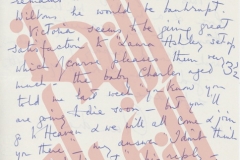 remains
Wilson he would be bankrupt.
Victoria seems to be giving great
satisfaction to Laura Hailey setup
which of course pleases them very
much — the baby Charles aged 3½
told me last week "you know you
are going to die soon but you'll
go to Heaven & we will all come & join
you there" — my answer I don't think